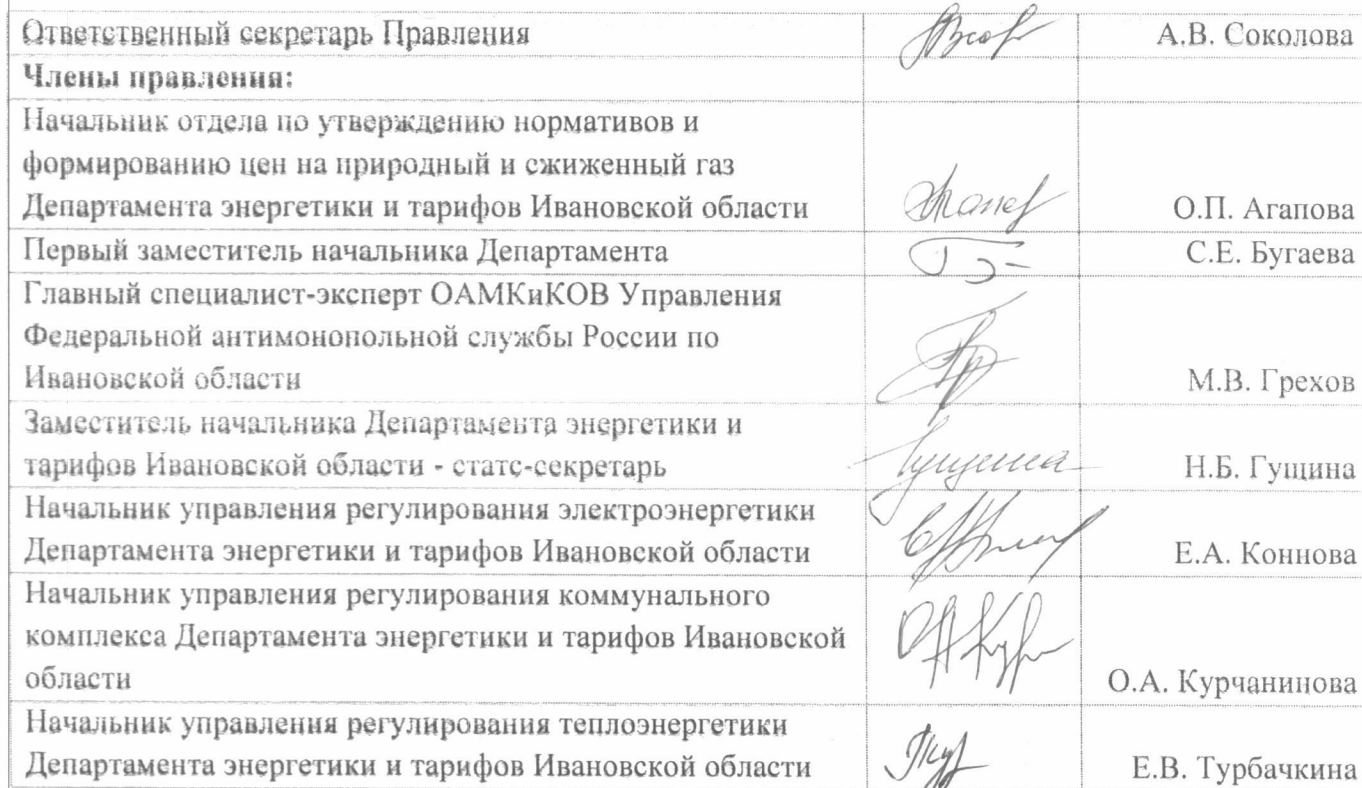 Ответственный секретарь Правления А.В. Соколова
Члены правления:
Начальник отдела по утверждению нормативов и
формированию цен на природный и сжиженный газ
Департамента энергетики и тарифов Ивановской области О.П. Агапова
Первый заместитель начальника Департамента С.Е. Бугаева
Главный специалист-эксперт ОАМКиКОВ Управления
Федеральной антимонопольной службы России по
Ивановской области М.В. Грехов
Заместитель начальника Департамента энергетики и
тарифов Ивановской области - статс-секретарь Гущина Н.Б. Гущина
Начальник управления регулирования электроэнергетики
Департамента энергетики и тарифов Ивановской области Е.А. Коннова
Начальник управления регулирования коммунального
комплекса Департамента энергетики и тарифов Ивановской
области О.А. Курчанинова
Начальник управления регулирования теплоэнергетики
Департамента энергетики и тарифов Ивановской области Е.В. Турбачкина